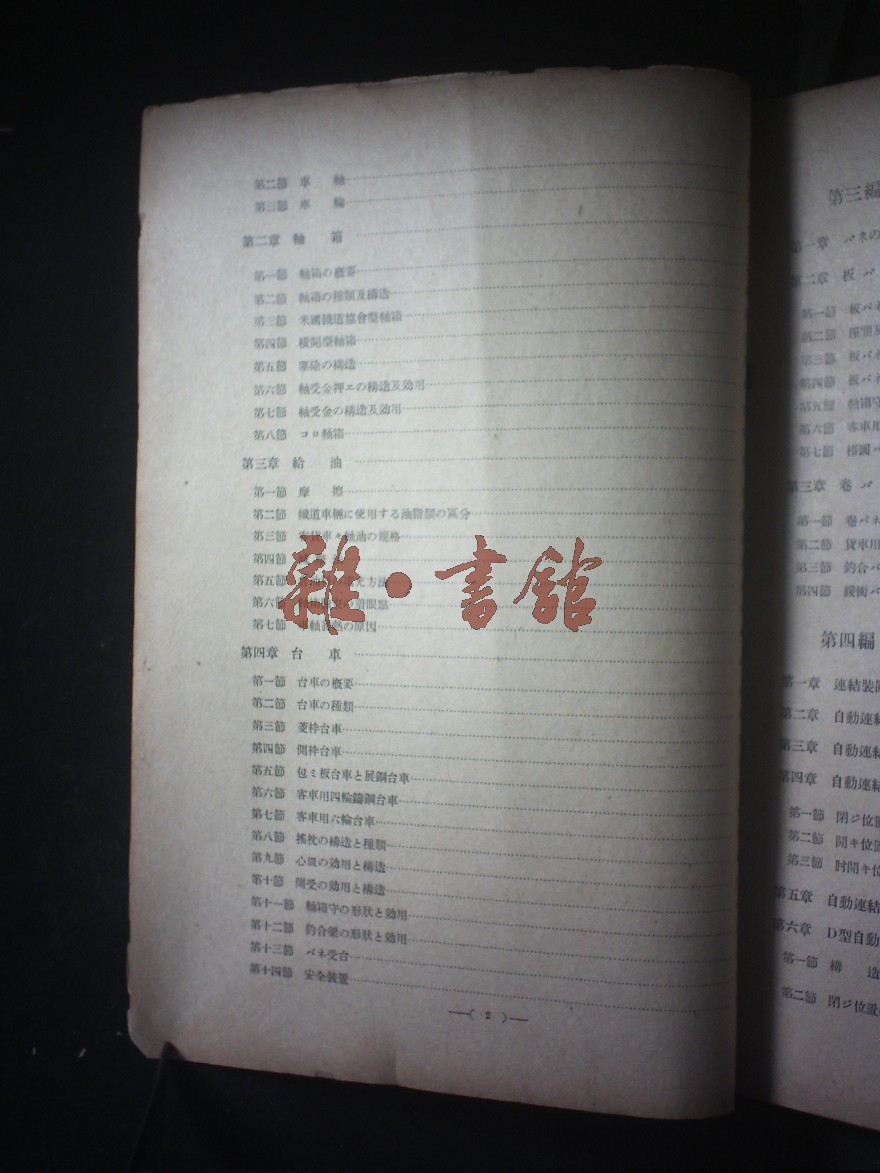 第二節 車 軸
第三節 車 輪
第二章 軸 箱
第一節 軸箱の概要
第二節 軸箱の種類及構造
第三節 米國鐵道協會型軸箱
第四節 橫開型軸箱
第五節 塵除の構造
第六節 軸受金押エの構造及効用
第七節 軸受金の構造及効用
第八節 コロ軸箱
第三章 給 油
第一節 摩 擦
第二節 鐵道車輛に使用する油脂類の區分
第三節 客貨車々軸油の規格
第四節
第五節 方法
第六節 の着眼點
第七節 車軸 熱の原因
第四章 台 車
第一節 台車の概要
第二節 台車の種類
第三節 菱枠台車
第四節 側枠台車
第五節 包ミ板台車と展鋼台車
第六節 客車用四輪鑄鋼台車
第七節 客車用六輪台車
第八節 搖枕の構造と種類
第九節 心皿の効用と構造
第十節 側受の効用と構造
第十一節 軸箱守の形狀と効用
第十二節 釣合梁の形狀と効用
第十三節 バネ受台
第十四節 安全裝置
( 2 )
雜·書館
第三編
第一章 バネの
第二章 板 バ
第一節 板バネ
第二節
第三節 板バネ
第四節 板バネ
第五節 軸箱守
第六節 客車用
第七節 橢圓バ
第三章 卷 バ
第一節 卷バネ
第二節 貨車用
第三節 釣合バ
第四節 緩衝バ
第四編
第一章 連結裝置
第二章 自動連結
第三章 自動連結
第四章 自動連結
第一節 閉ジ位置
第二節 開キ位置
第三節 肘開キ位
第五章 自動連結
第六章 D型自動
第一節 構 造
第二節 閉ジ位置